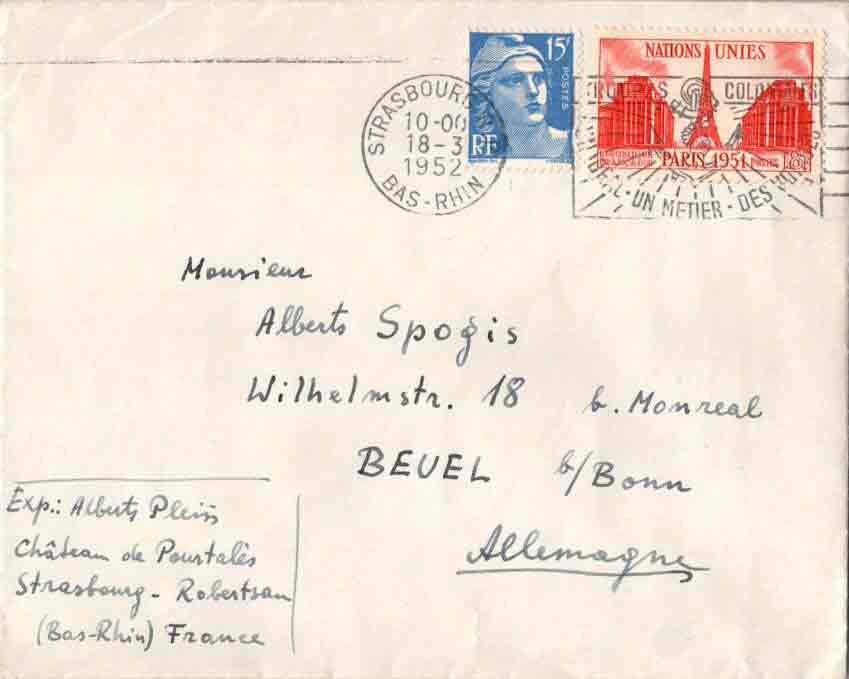 15F
POSTES
RF
NATIONS UNIES
PARIS 1951
STRASBOURG
10-00
18-3
1952
BAS-RHIN
TROUPES COLONIALES
UN METIER - DES
Monsieur
Alberts Spoģis
Wilhelmstr. 18 b. Monreal
BEUEL b/Bonn
Allemagne
Exp.: Alberts Pleišs
Château de Pourtalès
Strasbourg - Robertsau
(Bas-Rhin) France